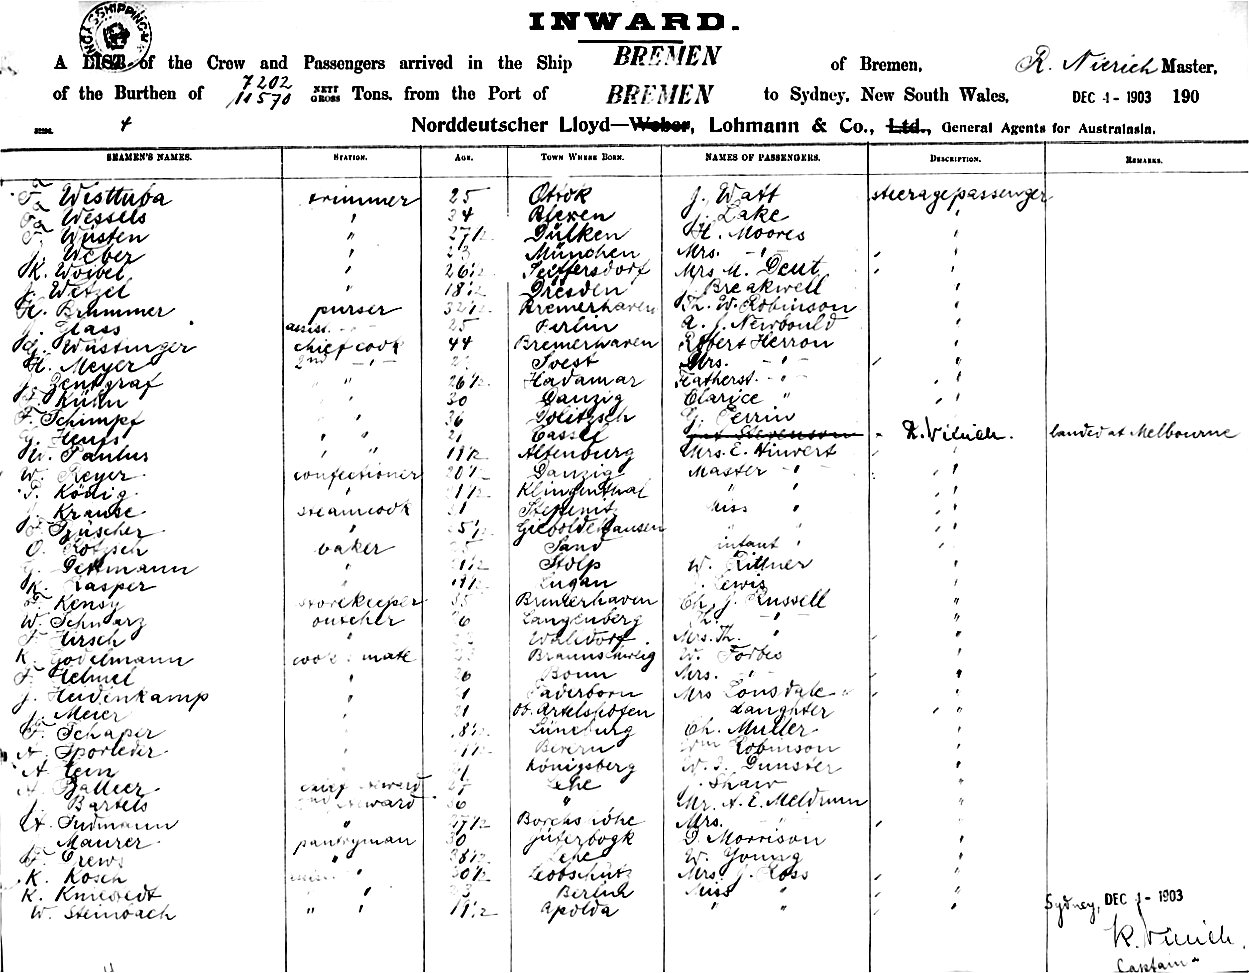 SHIPPING
INWARD.
A LIST of the Crew and Passengers arrived in the Ship BREMEN of Bremen, R. Nierich Master,
of the Burthen of 7202 11570 NETT GROSS Tons, from the Port of BREMEN to Sydney, New South Wales, DEC 1 - 1903 190
4 Norddeutscher Lloyd—Weber, Lohmann & Co., Ltd., General Agents for Australasia.
SEAMEN'S NAMES. STATION. AGE. TOWN WHERE BORN. NAMES OF PASSENGERS. DESCRIPTION. REMARKS.
Wisttuba trimmer 25 Ottok J. Watt steerage passenger
Wessels " 24 Blexen J. Lake "
Wüsten " 27 1/2 Dülken H. Moores "
J. Weber " 23 München Mrs. - " - "
K. Woibel " 26 1/2 Seiffersdorf Mrs M. Dent "
J. Wetzel " 18 1/2 Dresden J. Breakwell "
H. Brummer purser 32 1/2 Bremerhaven Th. W. Robinson "
J. Glass assist. - " - 25 Berlin A. J. Newbould "
G. Wüstinger chief cook 44 Bremerhaven Robert Herron "
H. Meyer 2nd - " - Soest Mrs. - " - "
J. Zentgraf " 26 1/2 Hadamar Featherst. - " - "
Kühn " 30 Danzig Clarice " "
F. Schimpf " 36 Dolitzsch G. Perrin "
G. Heufs " " 21 Cassel Stevenson R. Nierich. landed at Melbourne
W. Paulus " " 19 1/2 Altenburg Mrs. E. Hinvert "
W. Reyer confectioner 20 1/2 Danzig Master " "
F. König " 21 1/2 Klingenthal " " "
J. Krause steamcook 21 Stepenitz Miss " "
Züscher " 25 1/2 Gieboldehausen " " "
O. Kotzsch baker 25 Sand infant " "
G. Dettmann " 21 1/2 Stolp W. Rittner "
K. Kasper " 19 1/2 Lugau Lewis "
F. Kensy storekeeper 35 Bremerhaven Ch. J. Russell "
W. Schwarz butcher 26 Langenberg Th. " "
F. Hirsch " Walsdorf Mrs. Th. " "
K. Godelmann cook's mate Braunschweig W. Forbes "
F. Helmel " 26 Bonn Mrs. " "
J. Heidenkamp " 21 Paderborn Mrs Lonsdale "
Meier " 21 Ob. Artelshofen daughter "
F. Schaper " 18 1/2 Lüneburg Ch. Muller "
A. Sporleder " Bevern Wm Robinson "
A. Hein " 21 Königsberg W. J. Dunster "
A. Ballier chief steward Lehe Shaw "
J. Bartels 2nd steward 36 " Mr. A. E. Meldrum "
H. Sudmann " 27 1/2 Borchshöhe Mrs. " "
Maurer pantryman 30 Jüterbogk D. Morrison "
F. Drews " 38 1/2 Lehe W. Young "
K. Kosch " 30 1/2 Leobschütz Mrs J. Ross "
K. Kniestedt " " 23 Berlin Miss " "
W. Steinbach " " 19 1/2 Apolda " " "
Sydney, DEC 1 - 1903
R. Nierich.
Captain